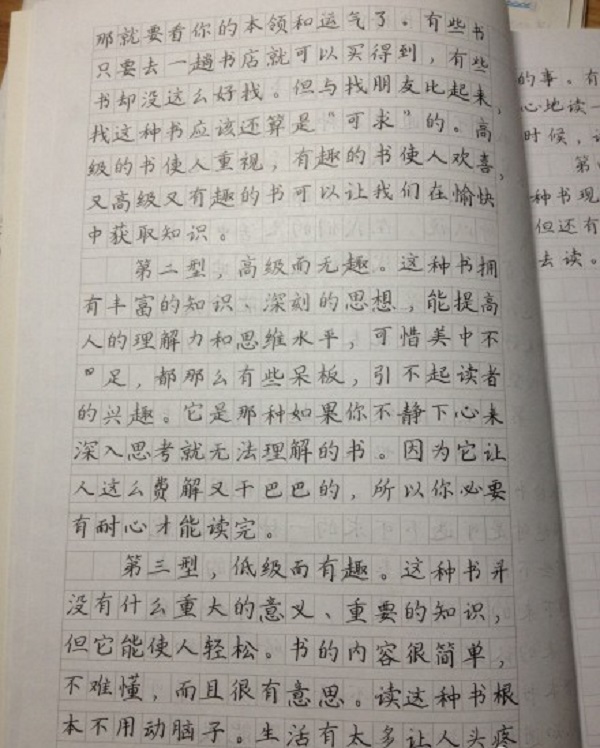 那就要看你的本领和运气了。有些书
只要去一趟书店就可以买得到，有些
书却没这么好找。但与找朋友比起来，
找这种书应该还算是“可求”的。高
级的书使人重视，有趣的书使人欢喜，
又高级又有趣的书可以让我们在愉快
中获取知识。
第二型，高级而无趣。这种书拥
有丰富的知识、深刻的思想，能提高
人的理解力和思维水平，可惜美中不
足，都那么有些呆板，引不起读者
的兴趣。它是那种如果你不静下心来
深入思考就无法理解的书。因为它让
人这么费解又干巴巴的，所以你必要
有耐心才能读完。
第三型，低级而有趣。这种书并
没有什么重大的意义、重要的知识，
但它能使人轻松。书的内容很简单，
不难懂，而且很有意思。读这种书根
本不用动脑子。生活有太多让人头疼
的事。有
心地读一
时候，
第
种书现
但还有
去读。